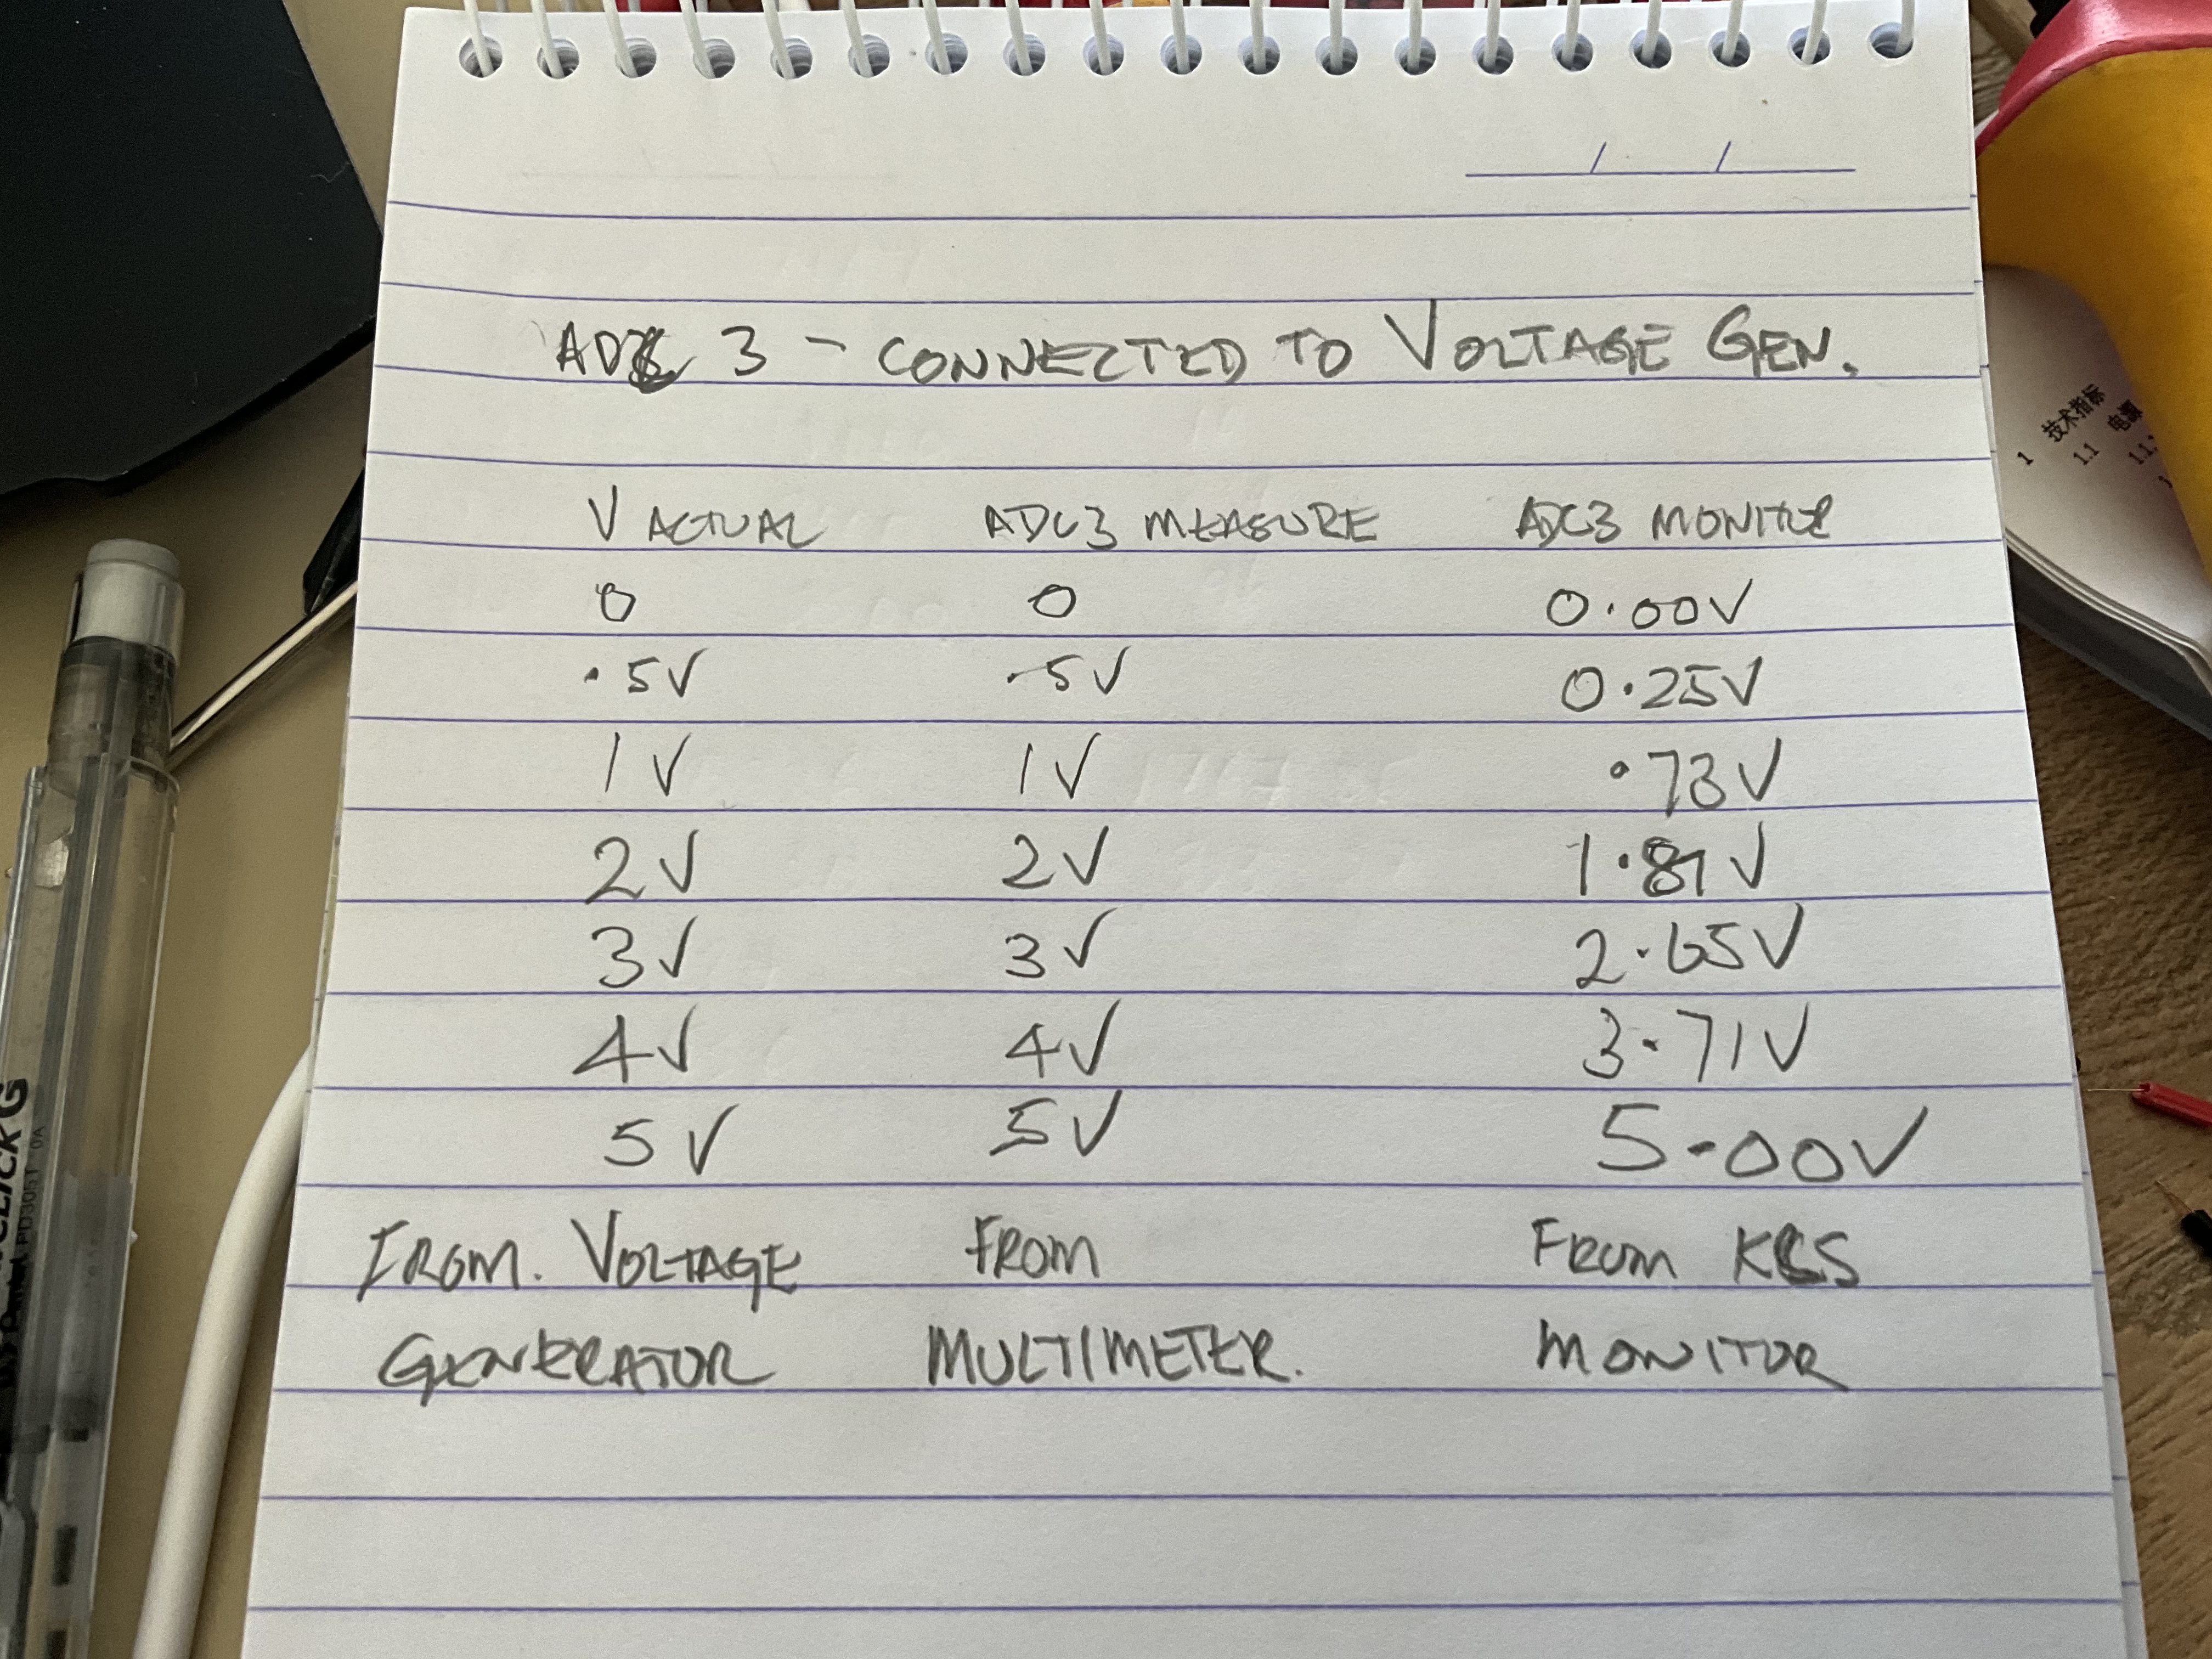 ADC 3 - CONNECTED TO VOLTAGE GEN.
V ACTUAL ADC3 MEASURE ADC3 MONITOR
0 0 0.00V
.5V .5V 0.25V
1V 1V .73V
2V 2V 1.81V
3V 3V 2.65V
4V 4V 3.71V
5V 5V 5.00V
FROM. VOLTAGE FROM FROM KCS
GENERATOR MULTIMETER. MONITOR
1 技术指标
1.1 电源
1.1.
PD3051 0A